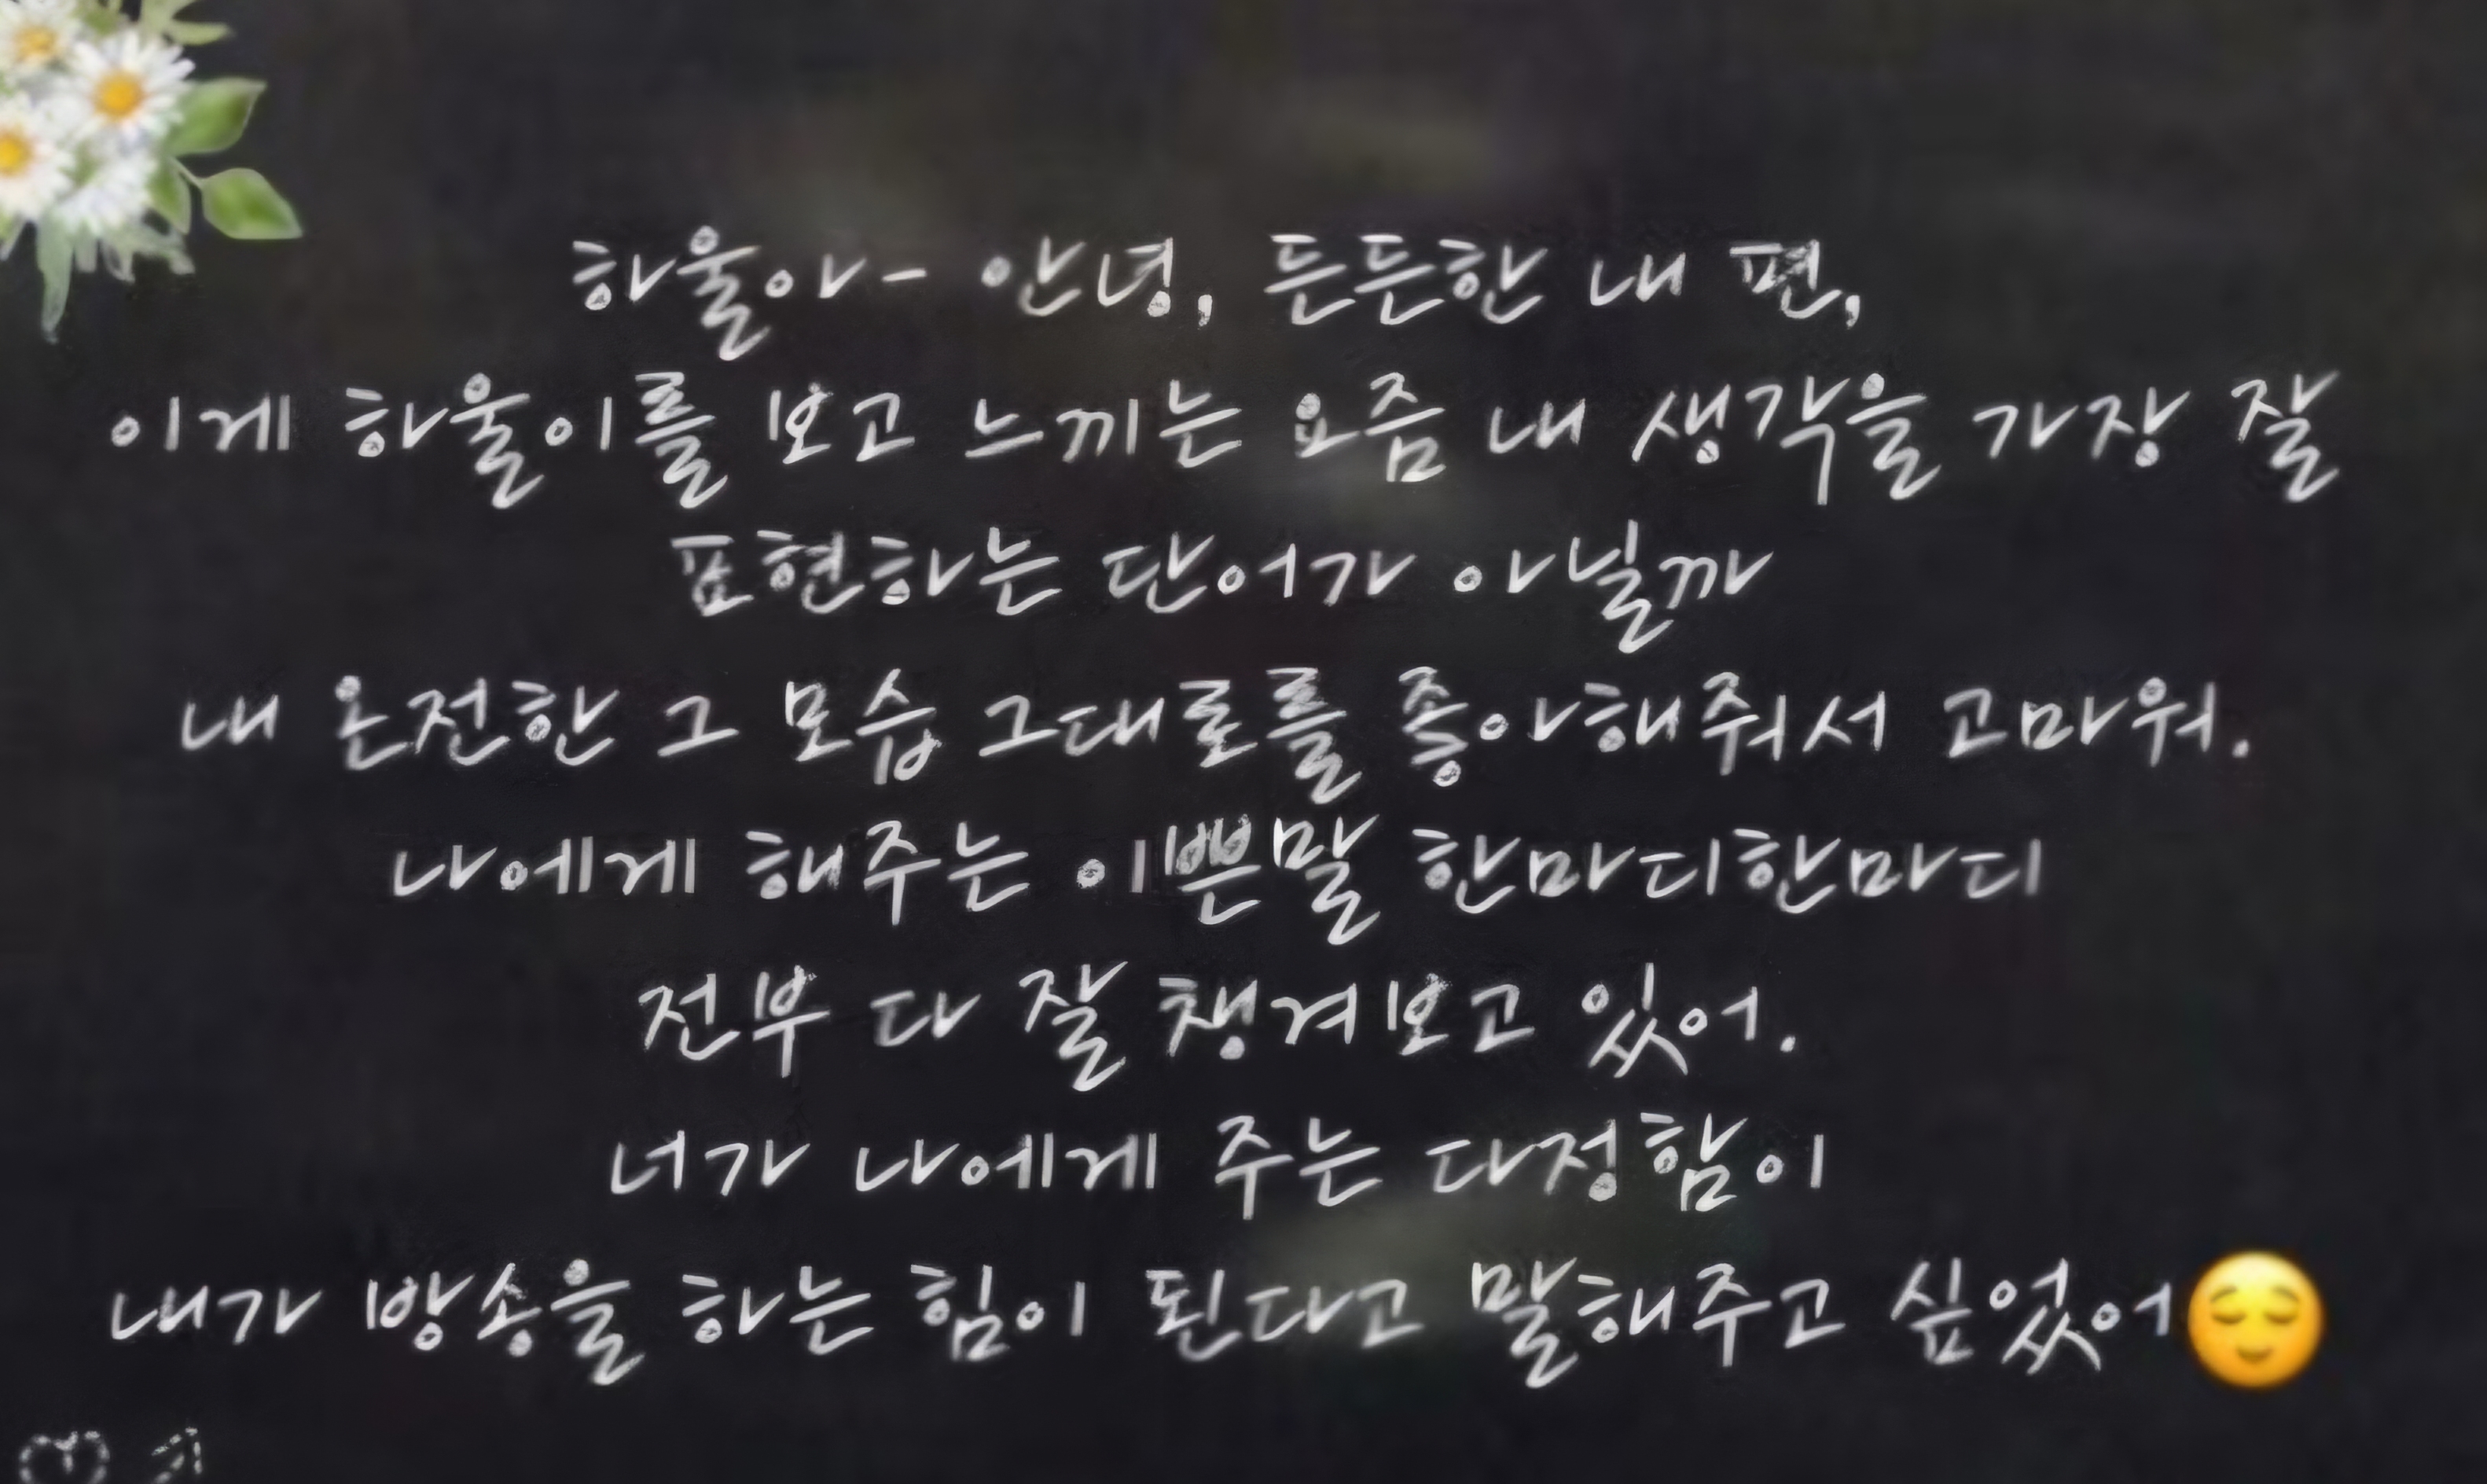 하울아- 안녕, 든든한 내 편,
이게 하울이를 보고 느끼는 요즘 내 생각을 가장 잘
표현하는 단어가 아닐까
내 온전한 그 모습 그대로를 좋아해줘서 고마워.
나에게 해주는 이쁜말 한마디한마디
전부 다 잘 챙겨보고 있어.
너가 나에게 주는 다정함이
내가 방송을 하는 힘이 된다고 말해주고 싶었어😌